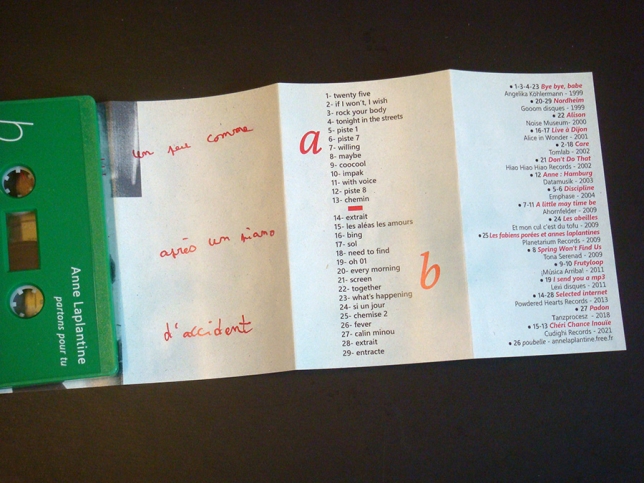 b
Anne Laplantine
partons pour tu
un peu comme
après un piano
d'accident
a
1- twenty five
2- if I won't, I wish
3- rock your body
4- tonight in the streets
5- piste 1
6- piste 7
7- willing
8- maybe
9- coocool
10- impak
11- with voice
12- piste 8
13- chemin
14- extrait
15- les aléas les amours
16- bing
17- sol
18- need to find
19- oh 01
20- every morning
21- screen
22- together
23- what's happening
24- si un jour
25- chemise 2
26- fever
27- calin minou
28- extrait
29- entracte
b
• 1-3-4-23 Bye bye, babe
Angelika Köhlermann - 1999
• 20-29 Nordheim
Gooom disques - 1999
• 22 Alison
Noise Museum- 2000
• 16-17 Live à Dijon
Alice in Wonder - 2001
• 2-18 Care
Tomlab - 2002
• 21 Don't Do That
Hao Hao Hiao Records - 2002
• 12 Anne : Hamburg
Datamusik - 2003
• 5-6 Discipline
Emphase - 2004
• 7-11 A little may time be
Ahornfelder - 2009
• 24 Les abeilles
Et mon cul c'est du tofu - 2009
• 25 Les fabiens porées et annes laplantines
Planetarium Records - 2009
• 8 Spring Won't Find Us
Tona Serenad - 2009
• 9-10 Frutyloop
¡Música Arriba! - 2011
• 19 I send you a mp3
Lexi disques - 2011
• 14-28 Selected internet
Powdered Hearts Records - 2013
• 27 Padon
Tanzprocesz - 2018
• 15-13 Chéri Chance Inouïe
Cudighi Records - 2021
• 26 poubelle - annelaplantine.free.fr